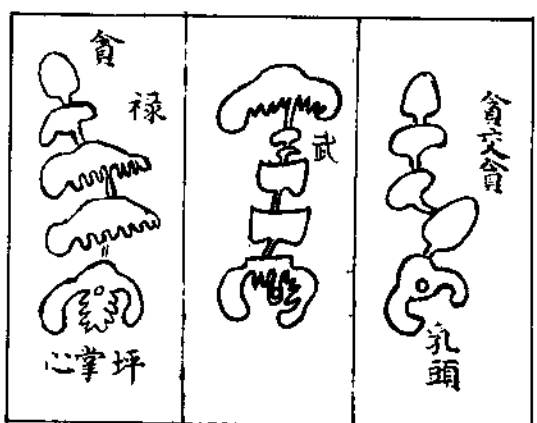 貪交貪
乳頭
武
貪
禄
坪掌心